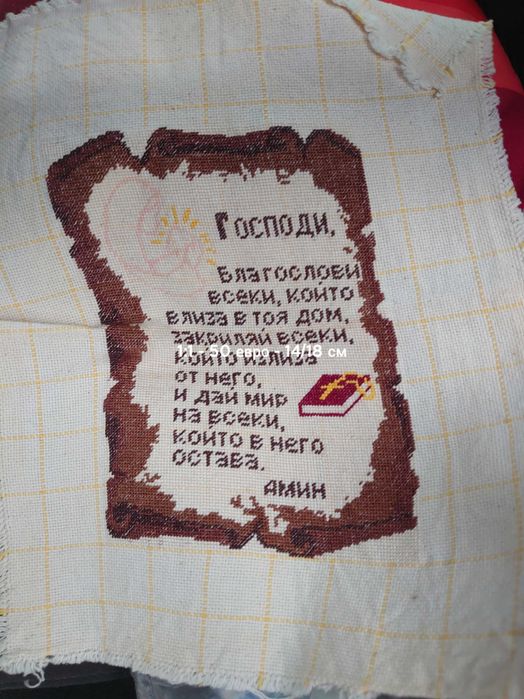 Господи,
Благослови
всеки, който
влиза в тоя дом,
закриляй всеки,
който излиза
от него,
и дай мир
на всеки,
който в него
остава.
Амин
11 - 50 евро - 14/18 см